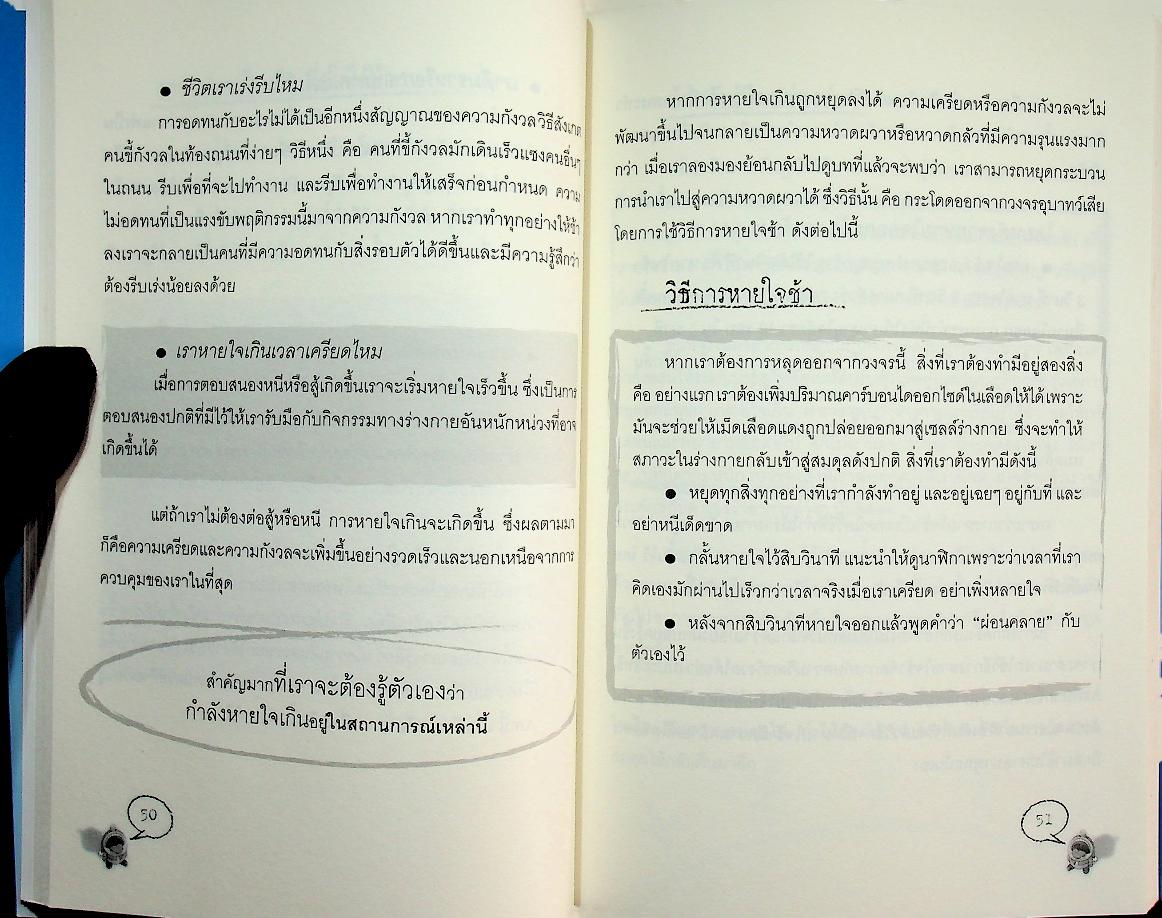 ● ชีวิตเราเร่งรีบไหม
การอดทนกับอะไรไม่ได้เป็นอีกหนึ่งสัญญาณของความกังวล วิธีสังเกต
คนขี้กังวลในท้องถนนที่ง่ายๆ วิธีหนึ่ง คือ คนที่ขี้กังวลมักเดินเร็วแซงคนอื่นๆ
ในถนน รีบเพื่อที่จะไปทำงาน และรีบเพื่อทำงานให้เสร็จก่อนกำหนด ความ
ไม่อดทนที่เป็นแรงขับพฤติกรรมนี้มาจากความกังวล หากเราทำทุกอย่างให้ช้า
ลงเราจะกลายเป็นคนที่มีความอดทนกับสิ่งรอบตัวได้ดีขึ้นและมีความรู้สึกว่า
ต้องรีบเร่งน้อยลงด้วย
● เราหายใจเกินเวลาเครียดไหม
เมื่อการตอบสนองหนีหรือสู้เกิดขึ้นเราจะเริ่มหายใจเร็วขึ้น ซึ่งเป็นการ
ตอบสนองปกติที่มีไว้ให้เรารับมือกับกิจกรรมทางร่างกายอันหนักหน่วงที่อาจ
เกิดขึ้นได้
แต่ถ้าเราไม่ต้องต่อสู้หรือหนี การหายใจเกินจะเกิดขึ้น ซึ่งผลตามมา
ก็คือความเครียดและความกังวลจะเพิ่มขึ้นอย่างรวดเร็วและนอกเหนือจากการ
ควบคุมของเราในที่สุด
สำคัญมากที่เราจะต้องรู้ตัวเองว่า
กำลังหายใจเกินอยู่ในสถานการณ์เหล่านี้
50
หากการหายใจเกินถูกหยุดลงได้ ความเครียดหรือความกังวลจะไม่
พัฒนาขึ้นไปจนกลายเป็นความหวาดผวาหรือหวาดกลัวที่มีความรุนแรงมาก
กว่า เมื่อเราลองมองย้อนกลับไปดูบทที่แล้วจะพบว่า เราสามารถหยุดกระบวน
การนำเราไปสู่ความหวาดผวาได้ ซึ่งวิธีนั้น คือ กระโดดออกจากวงจรอุบาทว์เสีย
โดยการใช้วิธีการหายใจช้า ดังต่อไปนี้
วิธีการหายใจช้า
หากเราต้องการหลุดออกจากวงจรนี้ สิ่งที่เราต้องทำมีอยู่สองสิ่ง
คือ อย่างแรก เราต้องเพิ่มปริมาณคาร์บอนไดออกไซด์ในเลือดให้ได้ เพราะ
มันจะช่วยให้เม็ดเลือดแดงถูกปล่อยออกมาสู่เซลล์ร่างกาย ซึ่งจะทำให้
สภาวะในร่างกายกลับเข้าสู่สมดุลดังปกติ สิ่งที่เราต้องทำมีดังนี้
● หยุดทุกสิ่งทุกอย่างที่เรากำลังทำอยู่ และอยู่เฉยๆ อยู่กับที่ และ
อย่าหนีเด็ดขาด
● กลั้นหายใจไว้สิบวินาที แนะนำให้ดูนาฬิกาเพราะว่าเวลาที่เรา
คิดเองมักผ่านไปเร็วกว่าเวลาจริงเมื่อเราเครียด อย่าเพิ่งหลายใจ
● หลังจากสิบวินาทีหายใจออกแล้วพูดคำว่า “ผ่อนคลาย” กับ
ตัวเองไว้
51